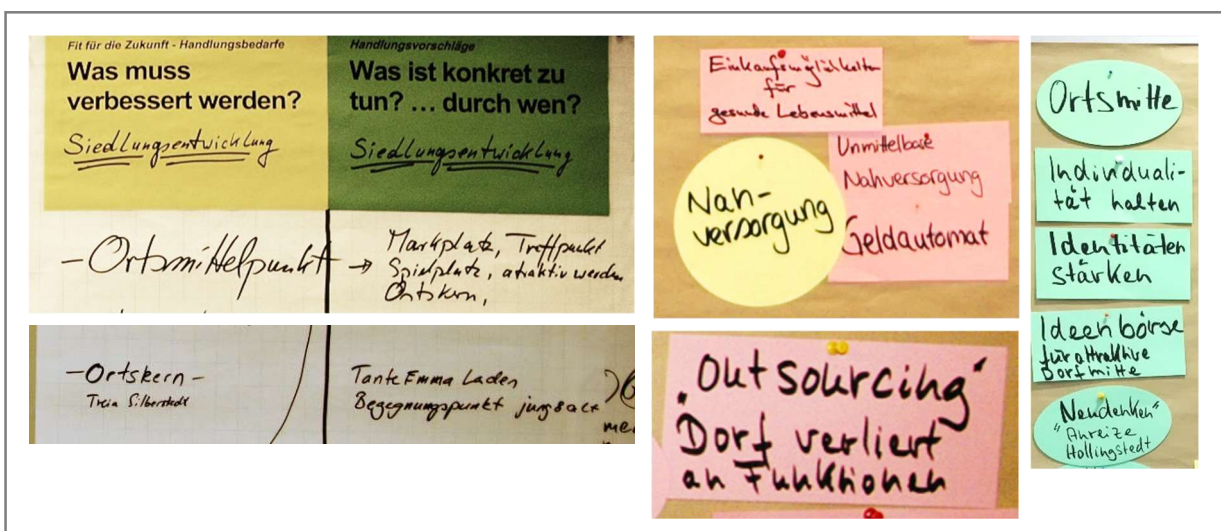 Fit für die Zukunft - Handlungsbedarfe
Was muss
verbessert werden?
Siedlungsentwicklung
Handlungsvorschläge
Was ist konkret zu
tun? ... durch wen?
Siedlungsentwicklung
- Ortsmittelpunkt
→ Marktplatz, Treffpunkt
Spielplatz, atraktiv werden
Ortskern,
- Ortskern -
Treia Silberstedt
Tante Emma Laden
Begegnungspunkt jung & alt
Einkaufsmöglichkeiten
für
gesunde Lebensmittel
Nah-
versorgung
Unmittelbare
Nahversorgung
Geldautomat
„Outsourcing"
Dorf verliert
an Funktionen
Ortsmitte
Individuali-
tät halten
Identitäten
stärken
Ideenbörse
für attraktive
Dorfmitte
Neudenken"
"Anreize
Hollingstedt